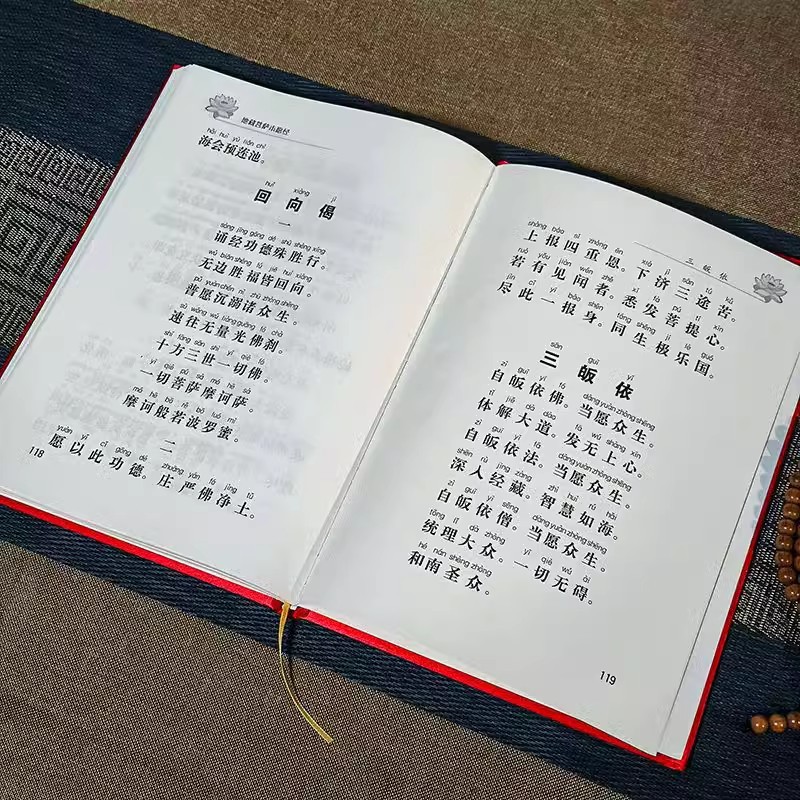 地藏菩萨本愿经
hǎi huì yù lián chí
海会预莲池。
huí xiàng jì
回向偈
一
sòng jīng gōng dé shū shèng xíng
诵经功德殊胜行。
wú biān shèng fú jiē huí xiàng
无边胜福皆回向。
pǔ yuàn chén nì zhū zhòng shēng
普愿沉溺诸众生。
sù wǎng wú liàng guāng fó chà
速往无量光佛刹。
shí fāng sān shì yí qiè fó
十方三世一切佛。
yí qiè pú sà mó hē sà
一切菩萨摩诃萨。
mó hē bō rě bō luó mì
摩诃般若波罗蜜。
二
yuàn yǐ cǐ gōng dé zhuāng yán fó jìng tǔ
愿以此功德。庄严佛净土。
118
三皈依
shàng bào sì zhòng ēn xià jì sān tú kǔ
上报四重恩。下济三途苦。
ruò yǒu jiàn wén zhě xī fā pú tí xīn
若有见闻者。悉发菩提心。
jìn cǐ yí bào shēn tóng shēng jí lè guó
尽此一报身。同生极乐国。
sān guī yī
三皈依
zì guī yī fó dāng yuàn zhòng shēng
自皈依佛。当愿众生。
tǐ jiě dà dào fā wú shàng xīn
体解大道。发无上心。
zì guī yī fǎ dāng yuàn zhòng shēng
自皈依法。当愿众生。
shēn rù jīng zàng zhì huì rú hǎi
深入经藏。智慧如海。
zì guī yī sēng dāng yuàn zhòng shēng
自皈依僧。当愿众生。
tǒng lǐ dà zhòng yí qiè wú ài
统理大众。一切无碍。
hé nán shèng zhòng
和南圣众。
119